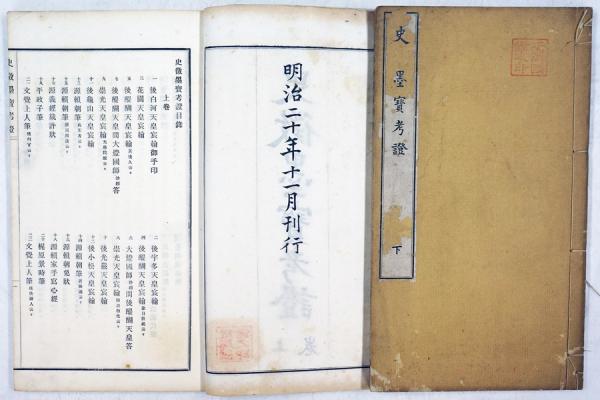 史 墨寶考證
下
明治二十年十一月刊行
史徵墨寶考證目錄
上卷
一 後白河天皇宸翰御手印
二 後宇多天皇宸翰
三 花園天皇宸翰
四 後醍醐天皇宸翰
五 後醍醐天皇宸翰
大燈國師 問後醍醐天皇答
七 後醍醐天皇問大燈國師 答
崇光天皇宸翰
九 崇光天皇宸翰
後光嚴天皇宸翰
後龜山天皇宸翰
後小松天皇宸翰
源賴朝筆
源賴朝筆
源賴朝筆
源賴朝免狀
源義經裁許狀
源賴家手寫心經
平政子筆
梶原景時筆
文覺上人筆
文覺上人筆
史徵墨寶考證